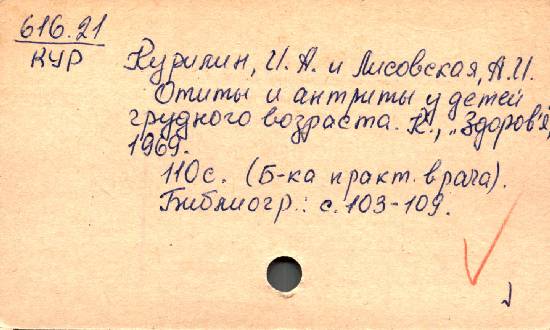 616.21
КУР
Курилин, И. А. и Лисовская, А.И.
Отиты и антриты у детей
грудного возраста. К., „Здоров'я,
1969.
110с. (Б-ка практ. врача).
Библиогр.: с. 103-109.